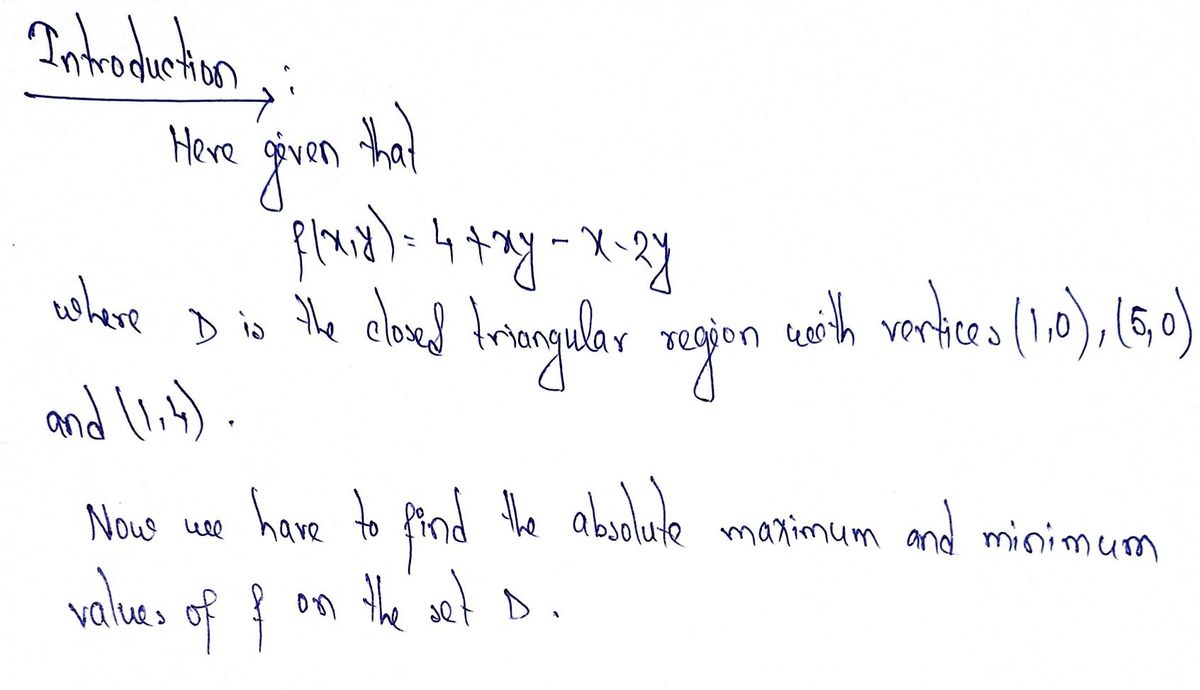 Introduction :
Here given that
f(x,y) = 4 + xy - x - 2y
where D is the closed triangular region with vertices (1,0), (5,0)
and (1,4).
Now we have to find the absolute maximum and minimum
values of f on the set D.